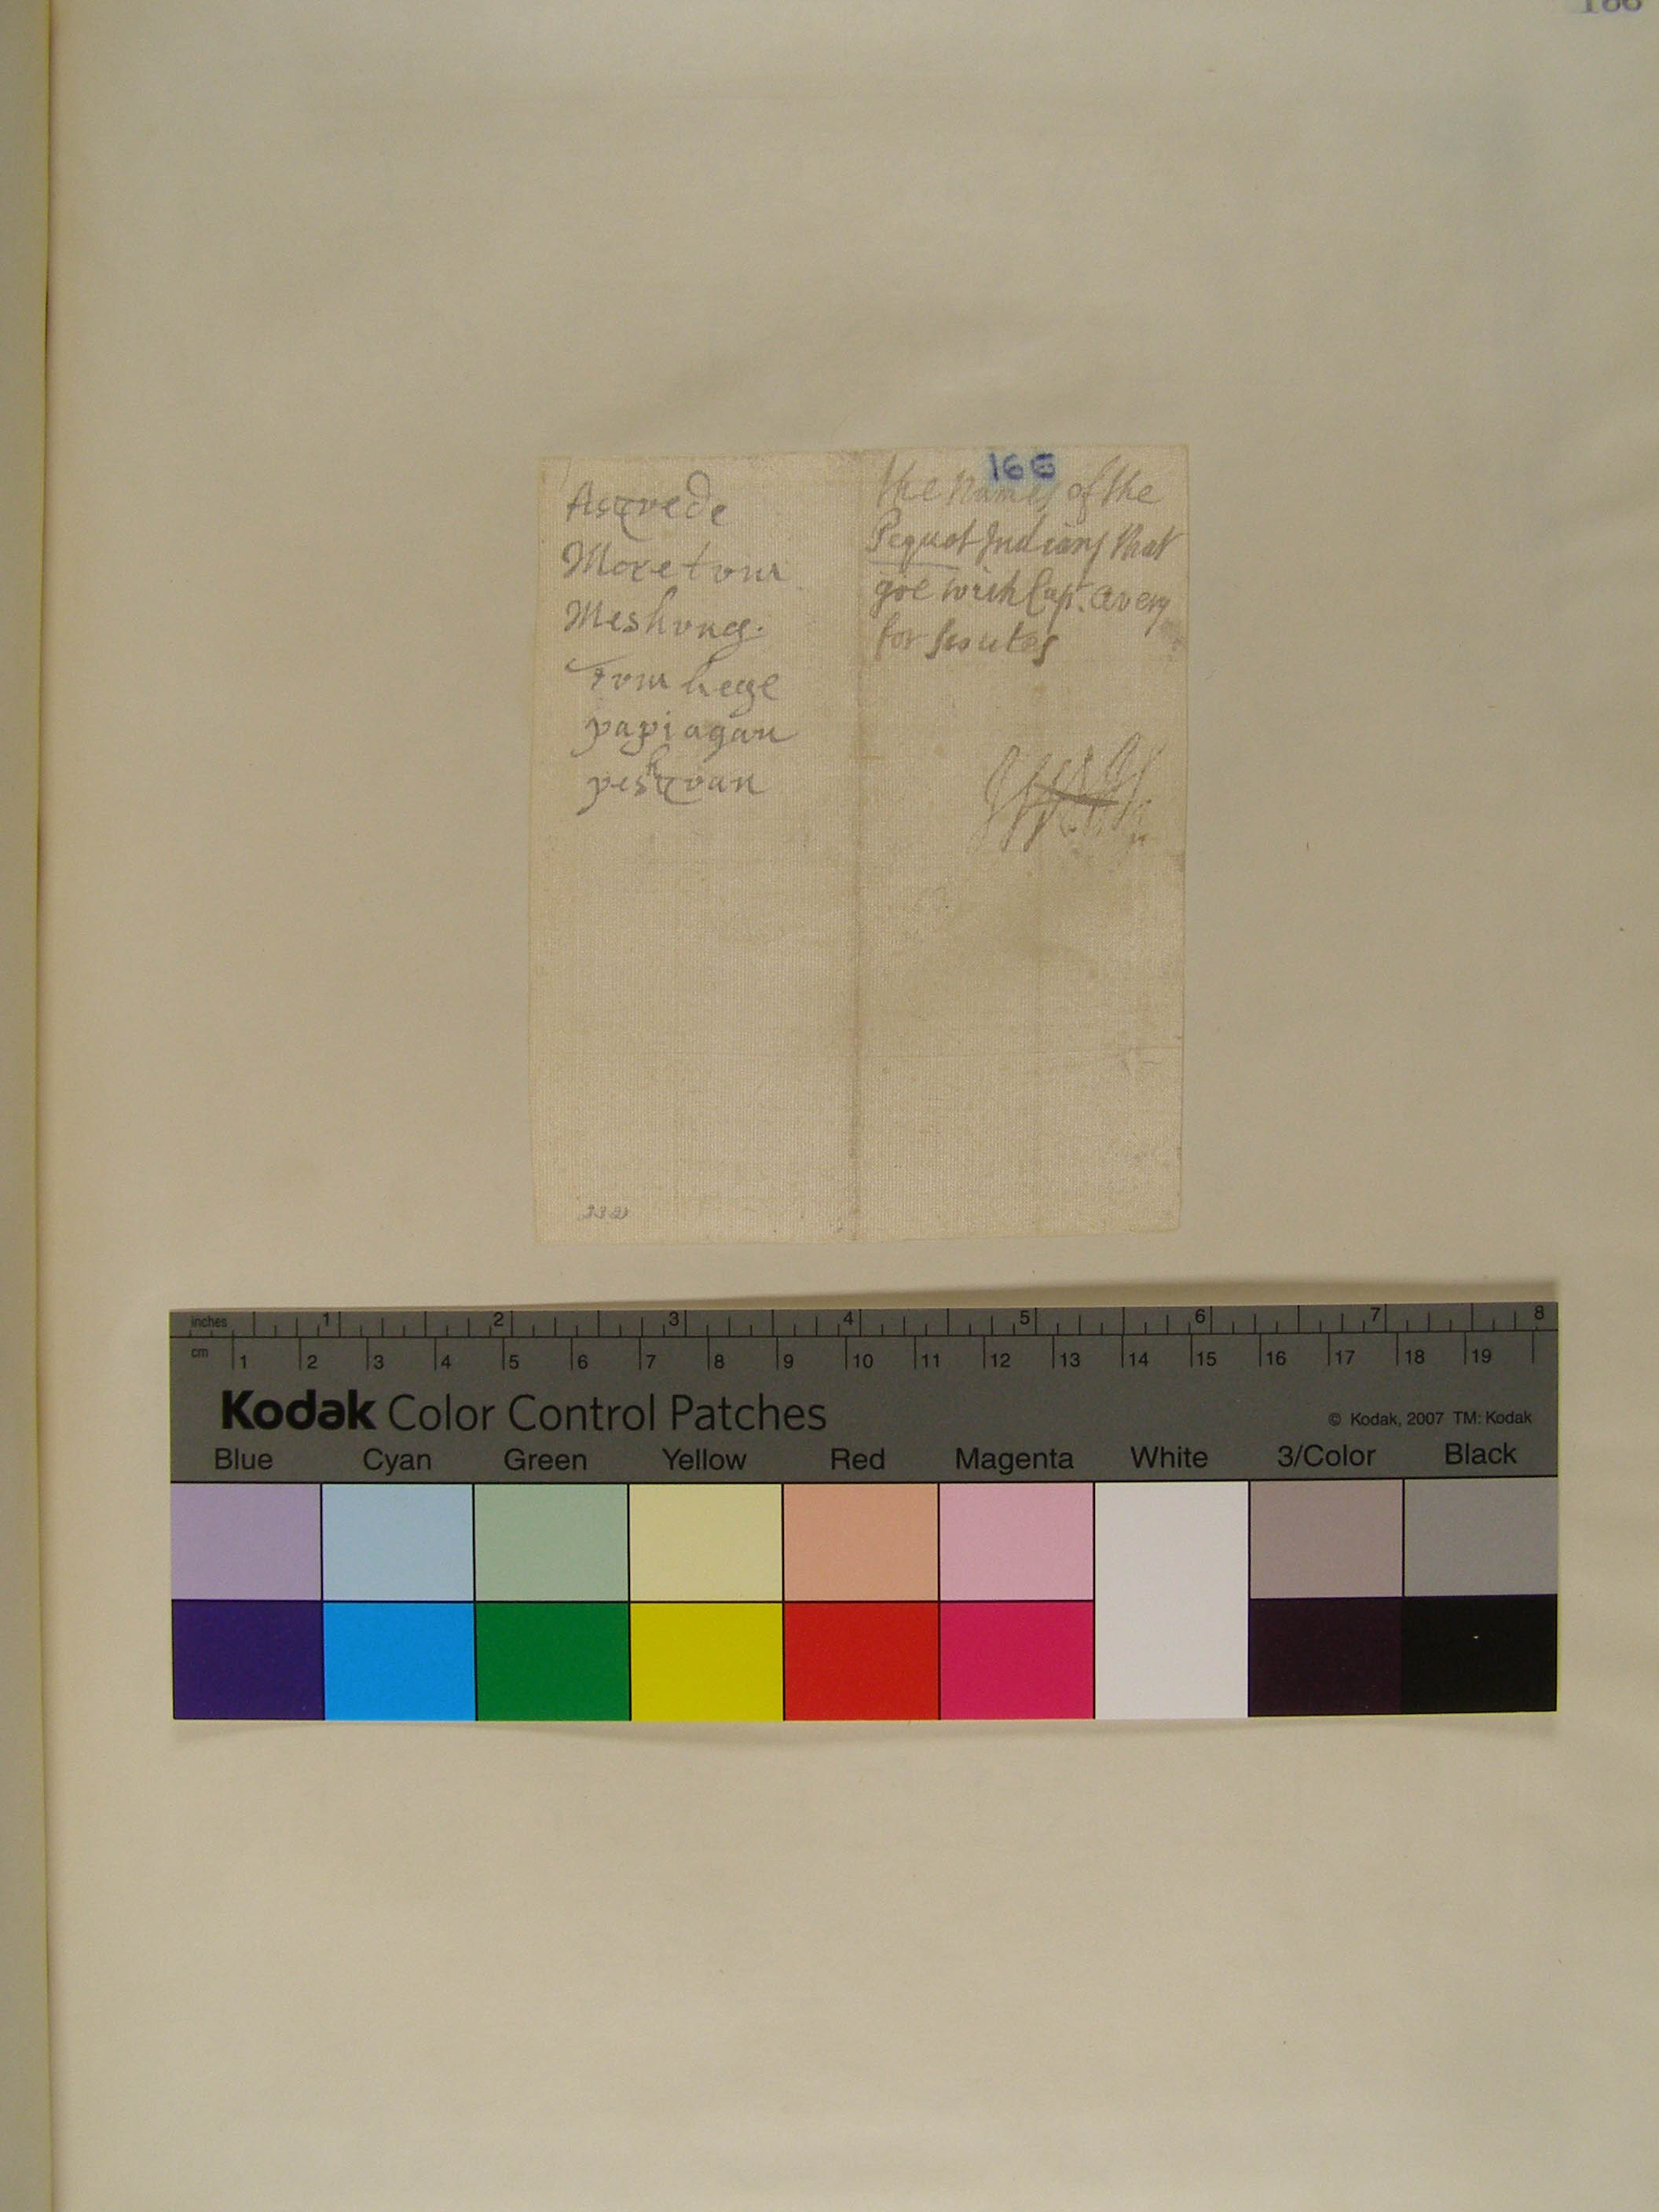 166
Ascvede
Moretom
Meshung.
Tom hege
papiagan
peshcvan
the Names of the
Pequot Indians that
goe with Capt. avery
for scoutes
332
inches 1 2 3 4 5 6 7 8
cm 1 2 3 4 5 6 7 8 9 10 11 12 13 14 15 16 17 18 19
Kodak Color Control Patches
© Kodak, 2007 TM: Kodak
Blue Cyan Green Yellow Red Magenta White 3/Color Black